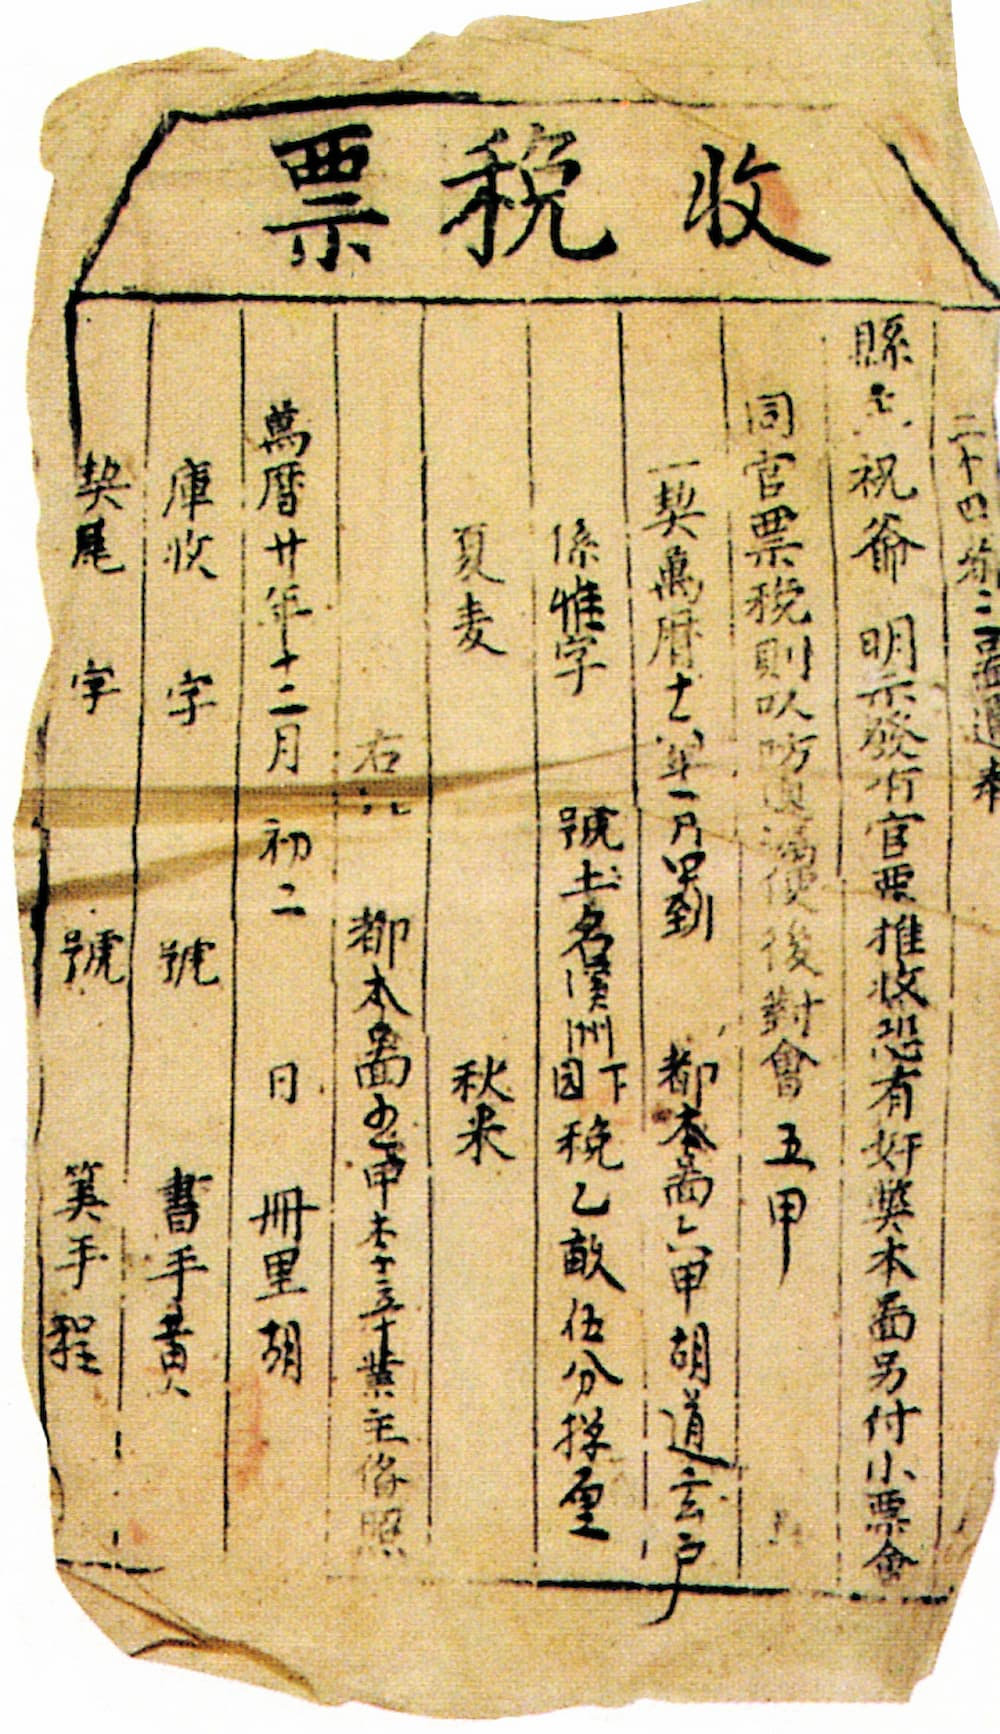 收稅票
二十四都二啚遵奉
縣主祝爺 明示發行官票推收恐有奸獘本啚另付小票會
同官票稅則以防遺漏便後對會 五甲
一契萬曆十八年一月買到 都本啚六甲胡道玄戶
係惟字 號土名漢洲下園稅乙畝伍分
夏麦 秋米
右 都本啚五甲 業主俻照
萬曆廿年十二月初二 日 冊里胡
庫收 字 號 書手黄
契尾 字 號 筭手程